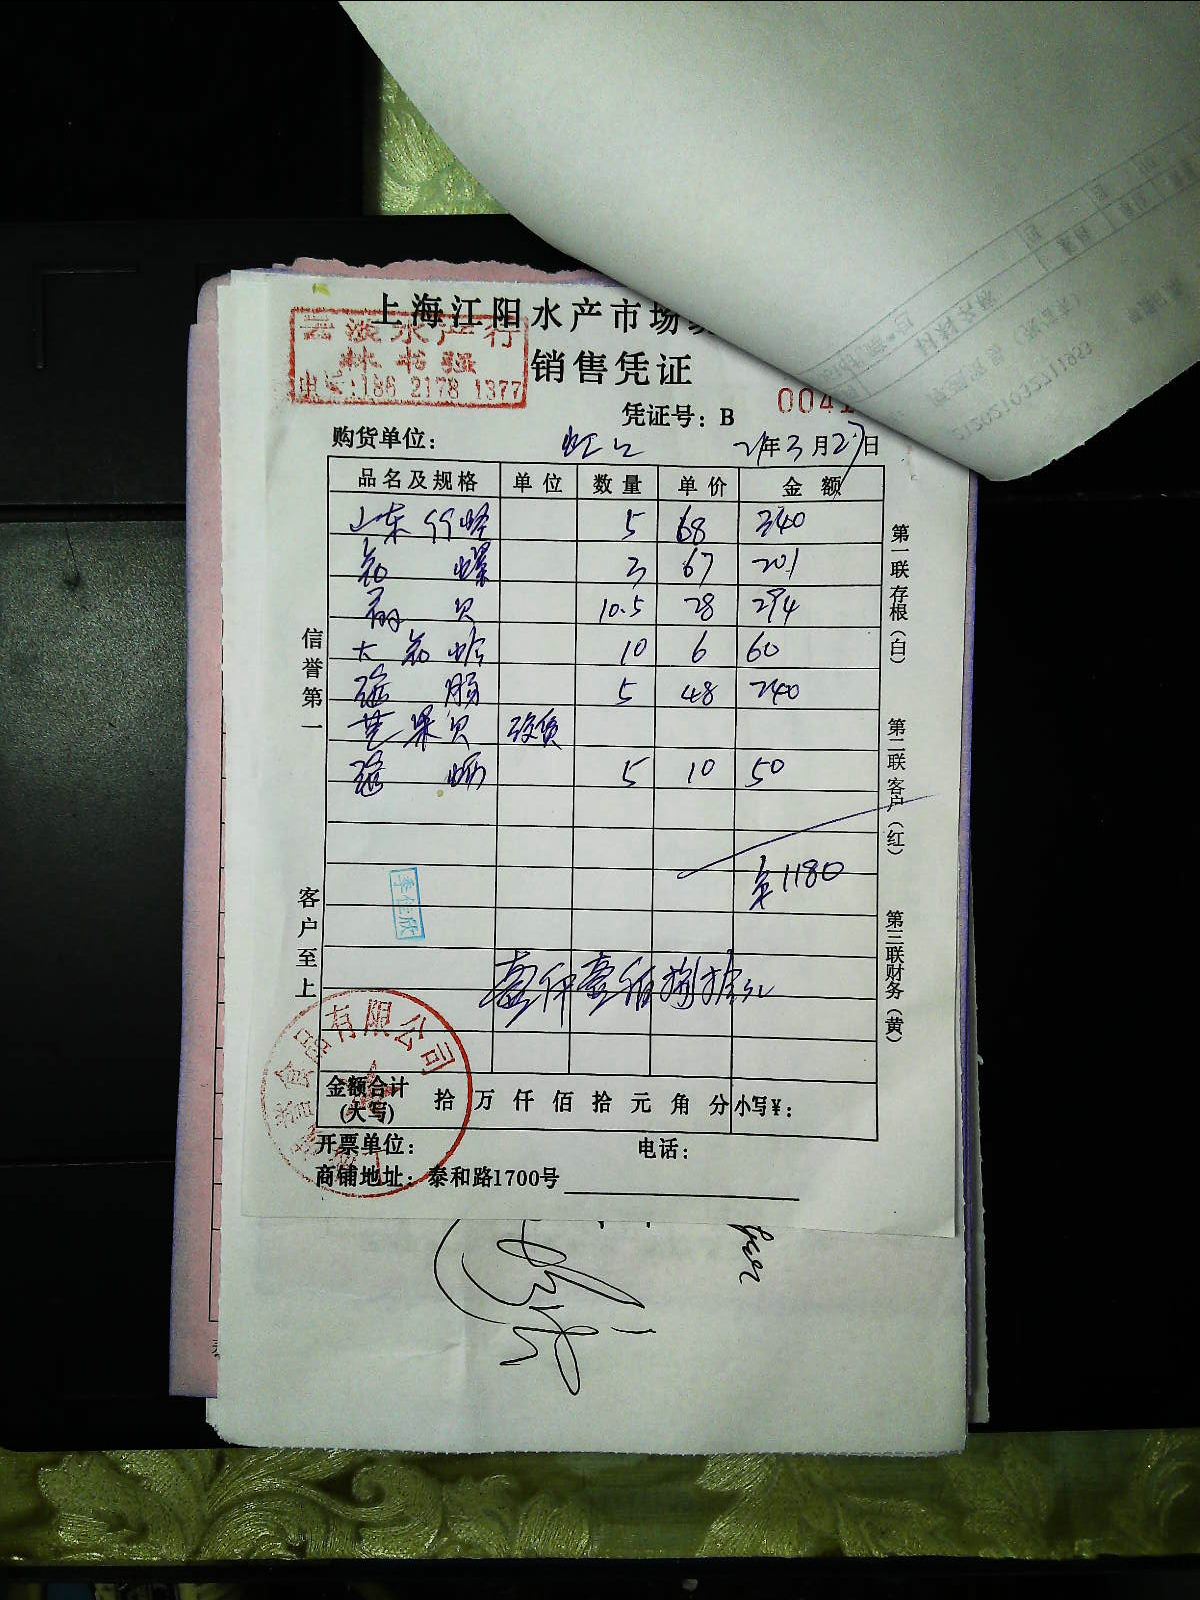 上海江阳水产市场
云淡水产行
林书强
电话:186 2178 1377
销售凭证
凭证号：B 0041
购货单位： 虹口 21年3月27日
品名及规格 单位 数量 单价 金额
山东竹蛏 5 68 340
花螺 3 67 201
扇贝 10.5 28 294
大花蛤 10 6 60
海肠 5 48 240
芒果贝 没货
海蛎 5 10 50
¥1180
李佳欣
壹仟壹佰捌拾元
金额合计(大写) 拾万仟佰拾元角分 小写¥：
食品有限公司
开票单位： 电话：
商铺地址：泰和路1700号
信誉第一 客户至上
第一联存根（白） 第二联客户（红） 第三联财务（黄）